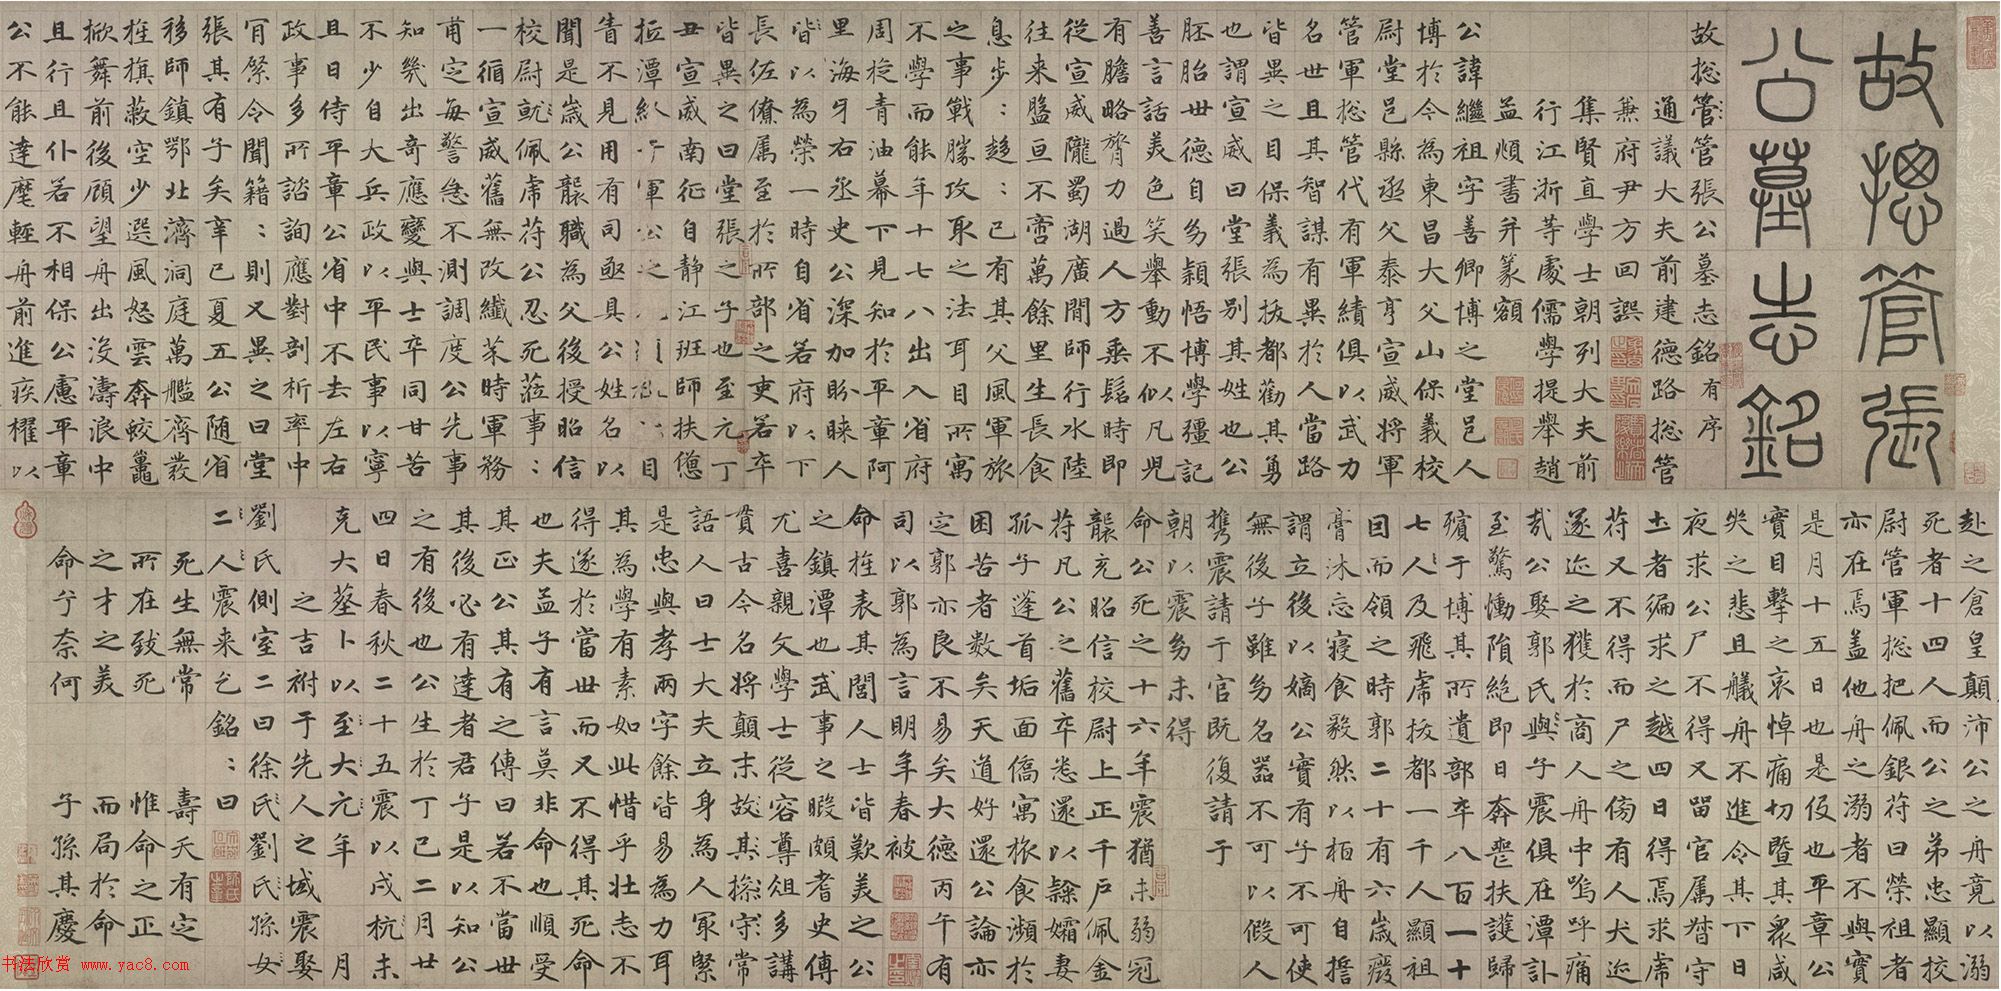 故揔管張
公墓志銘
故揔管管張公墓志銘有序
通議大夫前建德路揔管
兼府尹方回譔
集賢直學士朝列大夫前
行江浙等處儒學提舉趙
孟頫書并篆額
公諱繼祖字善卿博之堂邑人
博於令為東昌大父山保義校
尉堂邑縣丞父泰亨宣威將軍
管軍揔管代有軍績俱以武力
名世且其智謀有異於人當路
皆異之目保義為拔都勸其勇
也謂宣威曰堂張別其姓也公
胚胎世德自㓜穎悟博學彊記
善言話美色笑舉動不似凡兒
有膽略膂力過人方垂髫時即
從宣威隴蜀湖廣間師行水陸
往來盤亘不啻萬餘里生長食
息步:趍:已有其父風軍旅
之事戰勝攻取之法耳目所寓
不學而能年十七八出入省府
周旋青油幕下見知於平章阿
里海牙右丞史公深加盼睞人
皆以為榮一時自省若府以下
長佐僚屬至於所部之吏若卒
皆異之曰堂張之子也至元丁
丑宣威南征自静江班師扶傯
拉潭軍公之目
眚不見用有司亟具公姓名以
聞是歲公襲職為父後授昭信
校尉就佩虎苻公忍死蒞事:
一循宣威舊無改纖芥時軍務
甫定每警急不測調度公先事
知幾出奇應變與士卒同甘苦
不少自大兵政以平民事以寧
且日侍平章公省中不去左右
政事多所諮詢應對剖析率中
肎綮令聞籍:則又異之曰堂
張其有子矣辛巳夏五公随省
移師鎮鄂北濟洞庭萬艦齊發
旌旗蔽空少選風怒雲奔蛟鼉
掀舞前後顧望舟出没濤浪中
且行且仆若不相保公慮平章
公不能達麾輕舟前進疾櫂以
赴之倉皇顛沛公之舟竟以溺
死者十四人而公之弟忠顯校
尉管軍揔把佩銀苻曰榮祖者
亦在焉盖他舟之溺者不與實
是月十五日也是伇也平章公
實目擊之哀悼痛切暨其衆咸
失之悲且艤舟不進令其下日
夜求公尸不得又留官属督守
土者徧求之越四日得焉求虎
苻又不得而尸之傍有人犬迹
遂迹之獲於商人舟中嗚呼痛
㢤公娶郭氏與子震俱在潭訃
至驚慟隕絶即日奔喪扶護歸
殯于博其所遺部卒八百一十
七人及飛虎拔都一千人顯祖
囙而領之時郭二十有六歲癈
膏沐忘寝食毅然以栢舟自誓
謂立後以嫡公實有子不可使
無後子雖㓜名器不可以假人
携震請于官既復請于
朝以震㓜未得
命公死之十六年震猶未弱冠
襲充昭信校尉上正千户佩金
苻凡公之舊卒悉還以隷孀妻
孤子蓬首垢面僑寓旅食瀕於
困苦者數矣天道好還公論亦
定郭亦良不易矣大德丙午有
司以郭為言明年春被
命旌表其閭人士皆歎美之公
之鎮潭也武事之暇頗耆史傳
尤喜親文學士從容尊俎多講
貫古今名將顛末故其操守常
語人曰士大夫立身為人軍緊
是忠與孝兩字餘皆易為力耳
其為學有素如此惜乎壮志不
得遂於當世而又不得其死命
也夫益子有言莫非命也順受
其正公其有之傳曰若不當世
其後必有達者君子是以知公
之有後也公生於丁巳二月廿
四日春秋二十五震以戌杭未
克大塟卜以至大元年月
之吉祔于先人之域震娶
劉氏側室二曰徐氏劉氏孫女
二人震来乞銘:曰
死生無常 壽夭有定
所在致死 惟命之正
之才之美 而局於命
命兮奈何 子孫其慶
书法欣赏 www.yac8.com